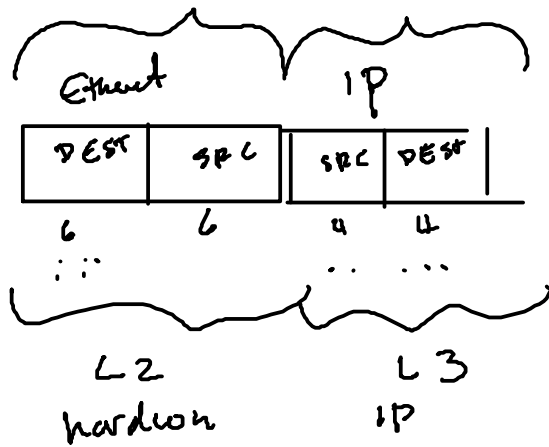 Ethernet IP
DEST SRC SRC DEST
6 6 4 4
L2 L3
hardware IP